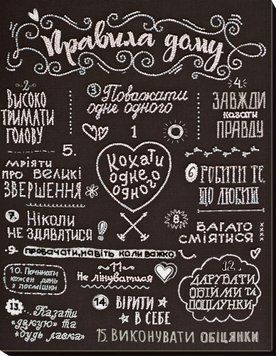 Правила дому
2.
ВИСОКО
ТРИМАТИ
ГОЛОВУ
3. Поважати
одне одного
4.
ЗАВЖДИ
казати
ПРАВДУ
1
Кохати
одне
одного
5.
МРІЯТИ
ПРО ВЕЛИКІ
ЗВЕРШЕННЯ
6. РОБИТИ ТЕ,
ЩО ЛЮБИШ
7. Ніколи
НЕ ЗДАВАТИСЯ!
8.
БАГАТО
СМІЯТИСЯ
9. ПРОБАЧАТИ, НАВІТЬ КОЛИ ВАЖКО
10. Починати
кожен день
з посмішки
11
Не лінуватися
12.
ДАРУВАТИ
ОБІЙМИ ТА
ПОЦІЛУНКИ
13. Казати
"дякую" та
"будь ласка"
14 ВІРИТИ
В СЕБЕ
15. ВИКОНУВАТИ ОБІЦЯНКИ